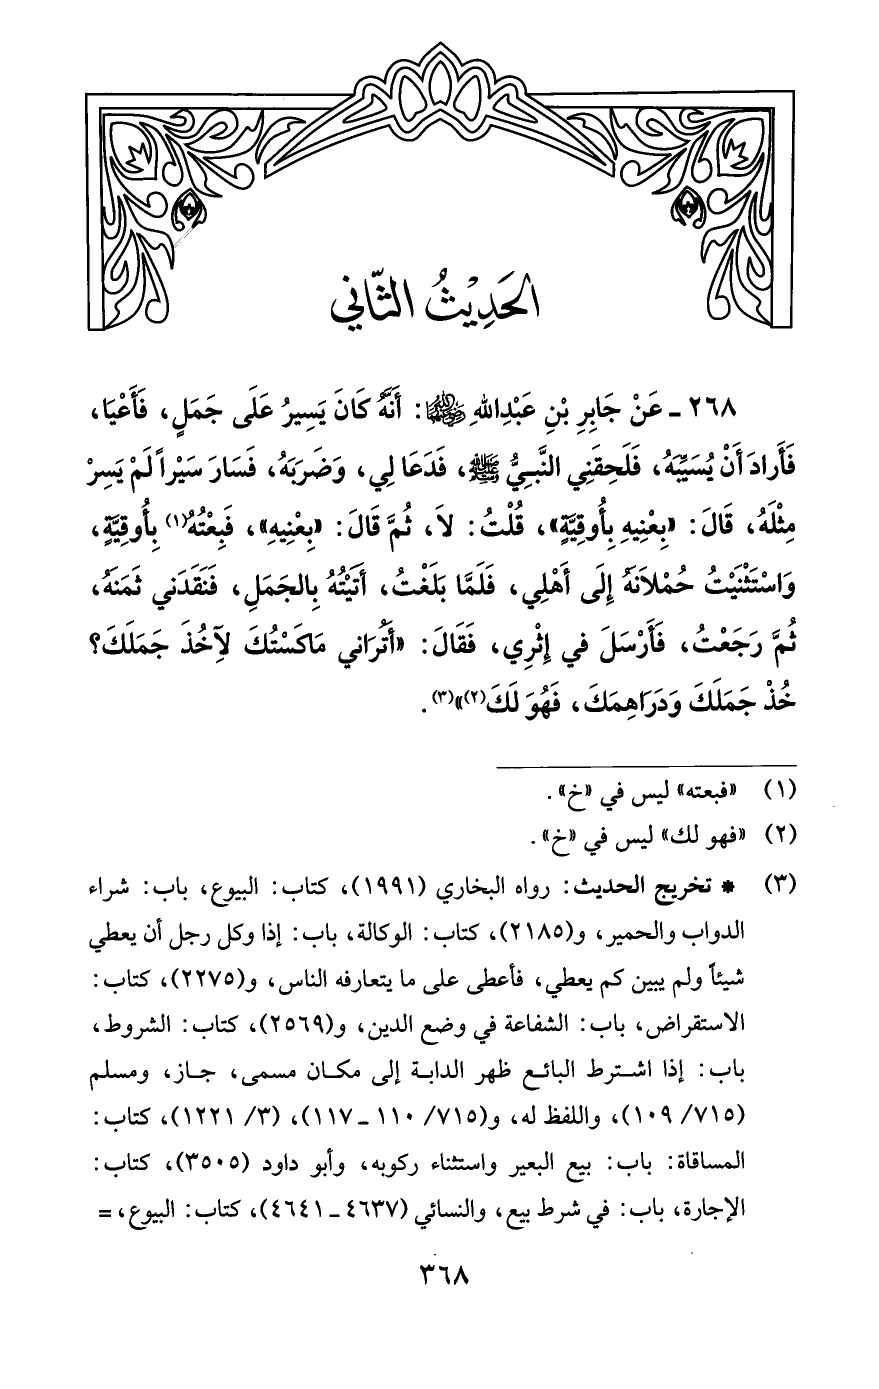 الحَدِيْثُ الثَّاني
٢٦٨ ـ عَنْ جَابِرِ بْنِ عَبْدِاللهِ ﵄: أَنَّهُ كَانَ يَسِيرُ عَلَى جَمَلٍ، فَأَعْيَا،
فَأَرادَ أَنْ يُسَيِّبَهُ، فَلَحِقَنِي النَّبِيُّ ﷺ، فَدَعَا لِي، وَضَرَبَهُ، فَسَارَ سَيْراً لَمْ يَسِرْ
مِثْلَهُ، قَالَ: «بِعْنِيهِ بِأُوقِيَّةٍ»، قُلْتُ: لاَ، ثُمَّ قَالَ: «بِعْنِيهِ»، فَبِعْتُهُ(١) بِأُوقِيَّةٍ،
وَاسْتَثْنَيْتُ حُمْلاَنَهُ إِلَى أَهْلِي، فَلَمَّا بَلَغْتُ، أَتَيْتُهُ بِالجَمَلِ، فَنَقَدَني ثَمَنَهُ،
ثُمَّ رَجَعْتُ، فَأَرْسَلَ في إِثْرِي، فَقَالَ: «أَتُرَاني مَاكَسْتُكَ لآِخُذَ جَمَلَكَ؟
خُذْ جَمَلَكَ وَدَرَاهِمَكَ، فَهُوَ لَكَ(٢)»(٣).
(١) «فبعته» ليس في «خ».
(٢) «فهو لك» ليس في «خ».
(٣) * تخريج الحديث: رواه البخاري (١٩٩١)، كتاب: البيوع، باب: شراء
الدواب والحمير، و(٢١٨٥)، كتاب: الوكالة، باب: إذا وكل رجل أن يعطي
شيئاً ولم يبين كم يعطي، فأعطى على ما يتعارفه الناس، و(٢٢٧٥)، كتاب:
الاستقراض، باب: الشفاعة في وضع الدين، و(٢٥٦٩)، كتاب: الشروط،
باب: إذا اشترط البائع ظهر الدابة إلى مكان مسمى، جاز، ومسلم
(٧١٥/ ١٠٩)، واللفظ له، و(٧١٥/ ١١٠ ـ ١١٧)، (٣/ ١٢٢١)، كتاب:
المساقاة: باب: بيع البعير واستثناء ركوبه، وأبو داود (٣٥٠٥)، كتاب:
الإجارة، باب: في شرط بيع، والنسائي (٤٦٣٧ ـ ٤٦٤١)، كتاب: البيوع، =
٣٦٨